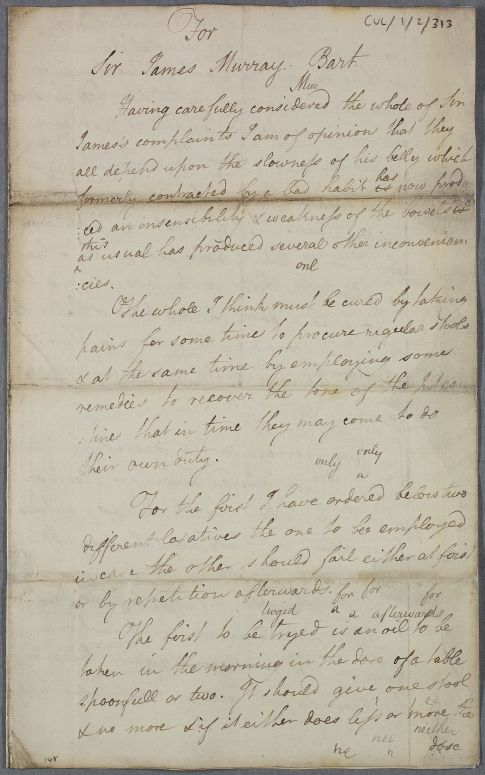 CUL/1/2/313
For
Sir James Murray. Bart.
Mur
Having carefully considered the whole of Sir
James's complaints I am of opinion that they
all depend upon the slowness of his belly which
formerly contracted by a bad habit has now produ
:ced an insensibility & weakness of the bowels &
this
as usual has produced several other inconvenien.
:cies.
onl
The whole I think must be cured by taking
pains for some time to procure regular stools
& at the same time by employing some
remedies to recover the tone of the Intes
:tines that in time they may come to do
their own duty.
only only
a
For the first I have ordered below two
different laxatives the one to be employed
in case the other should fail either at first
or by repetition afterwards. for for for
a a afterwards
The first to be tryed is an oil to be
taken in the morning in the dose of a table
spoonfull or two. It should give one stool
& no more & if it either does less or more the
nei neither
ne n dose
148